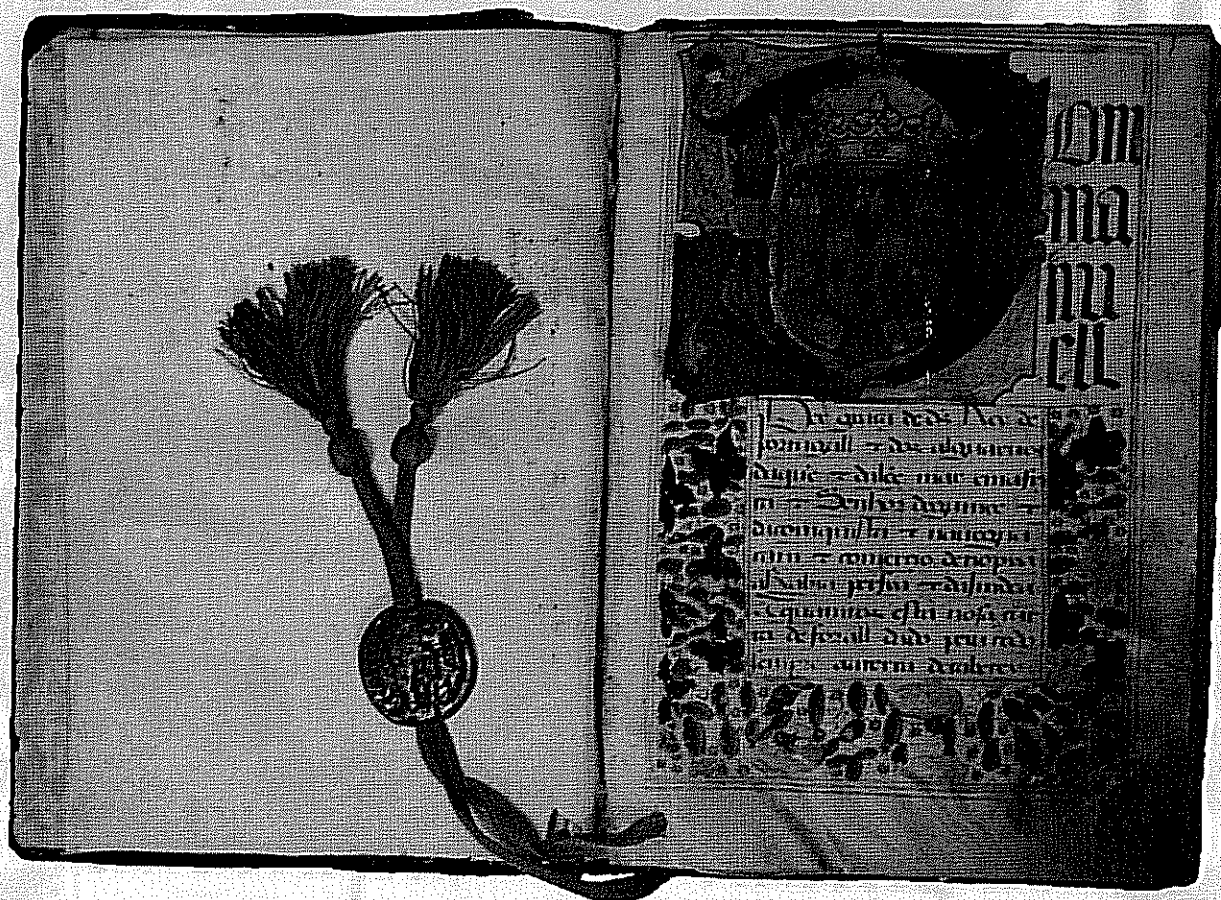 DOM
ma
nu
ell
Per graça de ds Rey de
portugall ⁊ dos algarues
daquē ⁊ dalē mar em afri
ca ⁊ Senhor de guinee ⁊
da conquista ⁊ nauegaça
⁊ comercio de
arabia persia ⁊ da jndia
A quantos esta nosa car
ta de forall dado pera todo
sempre